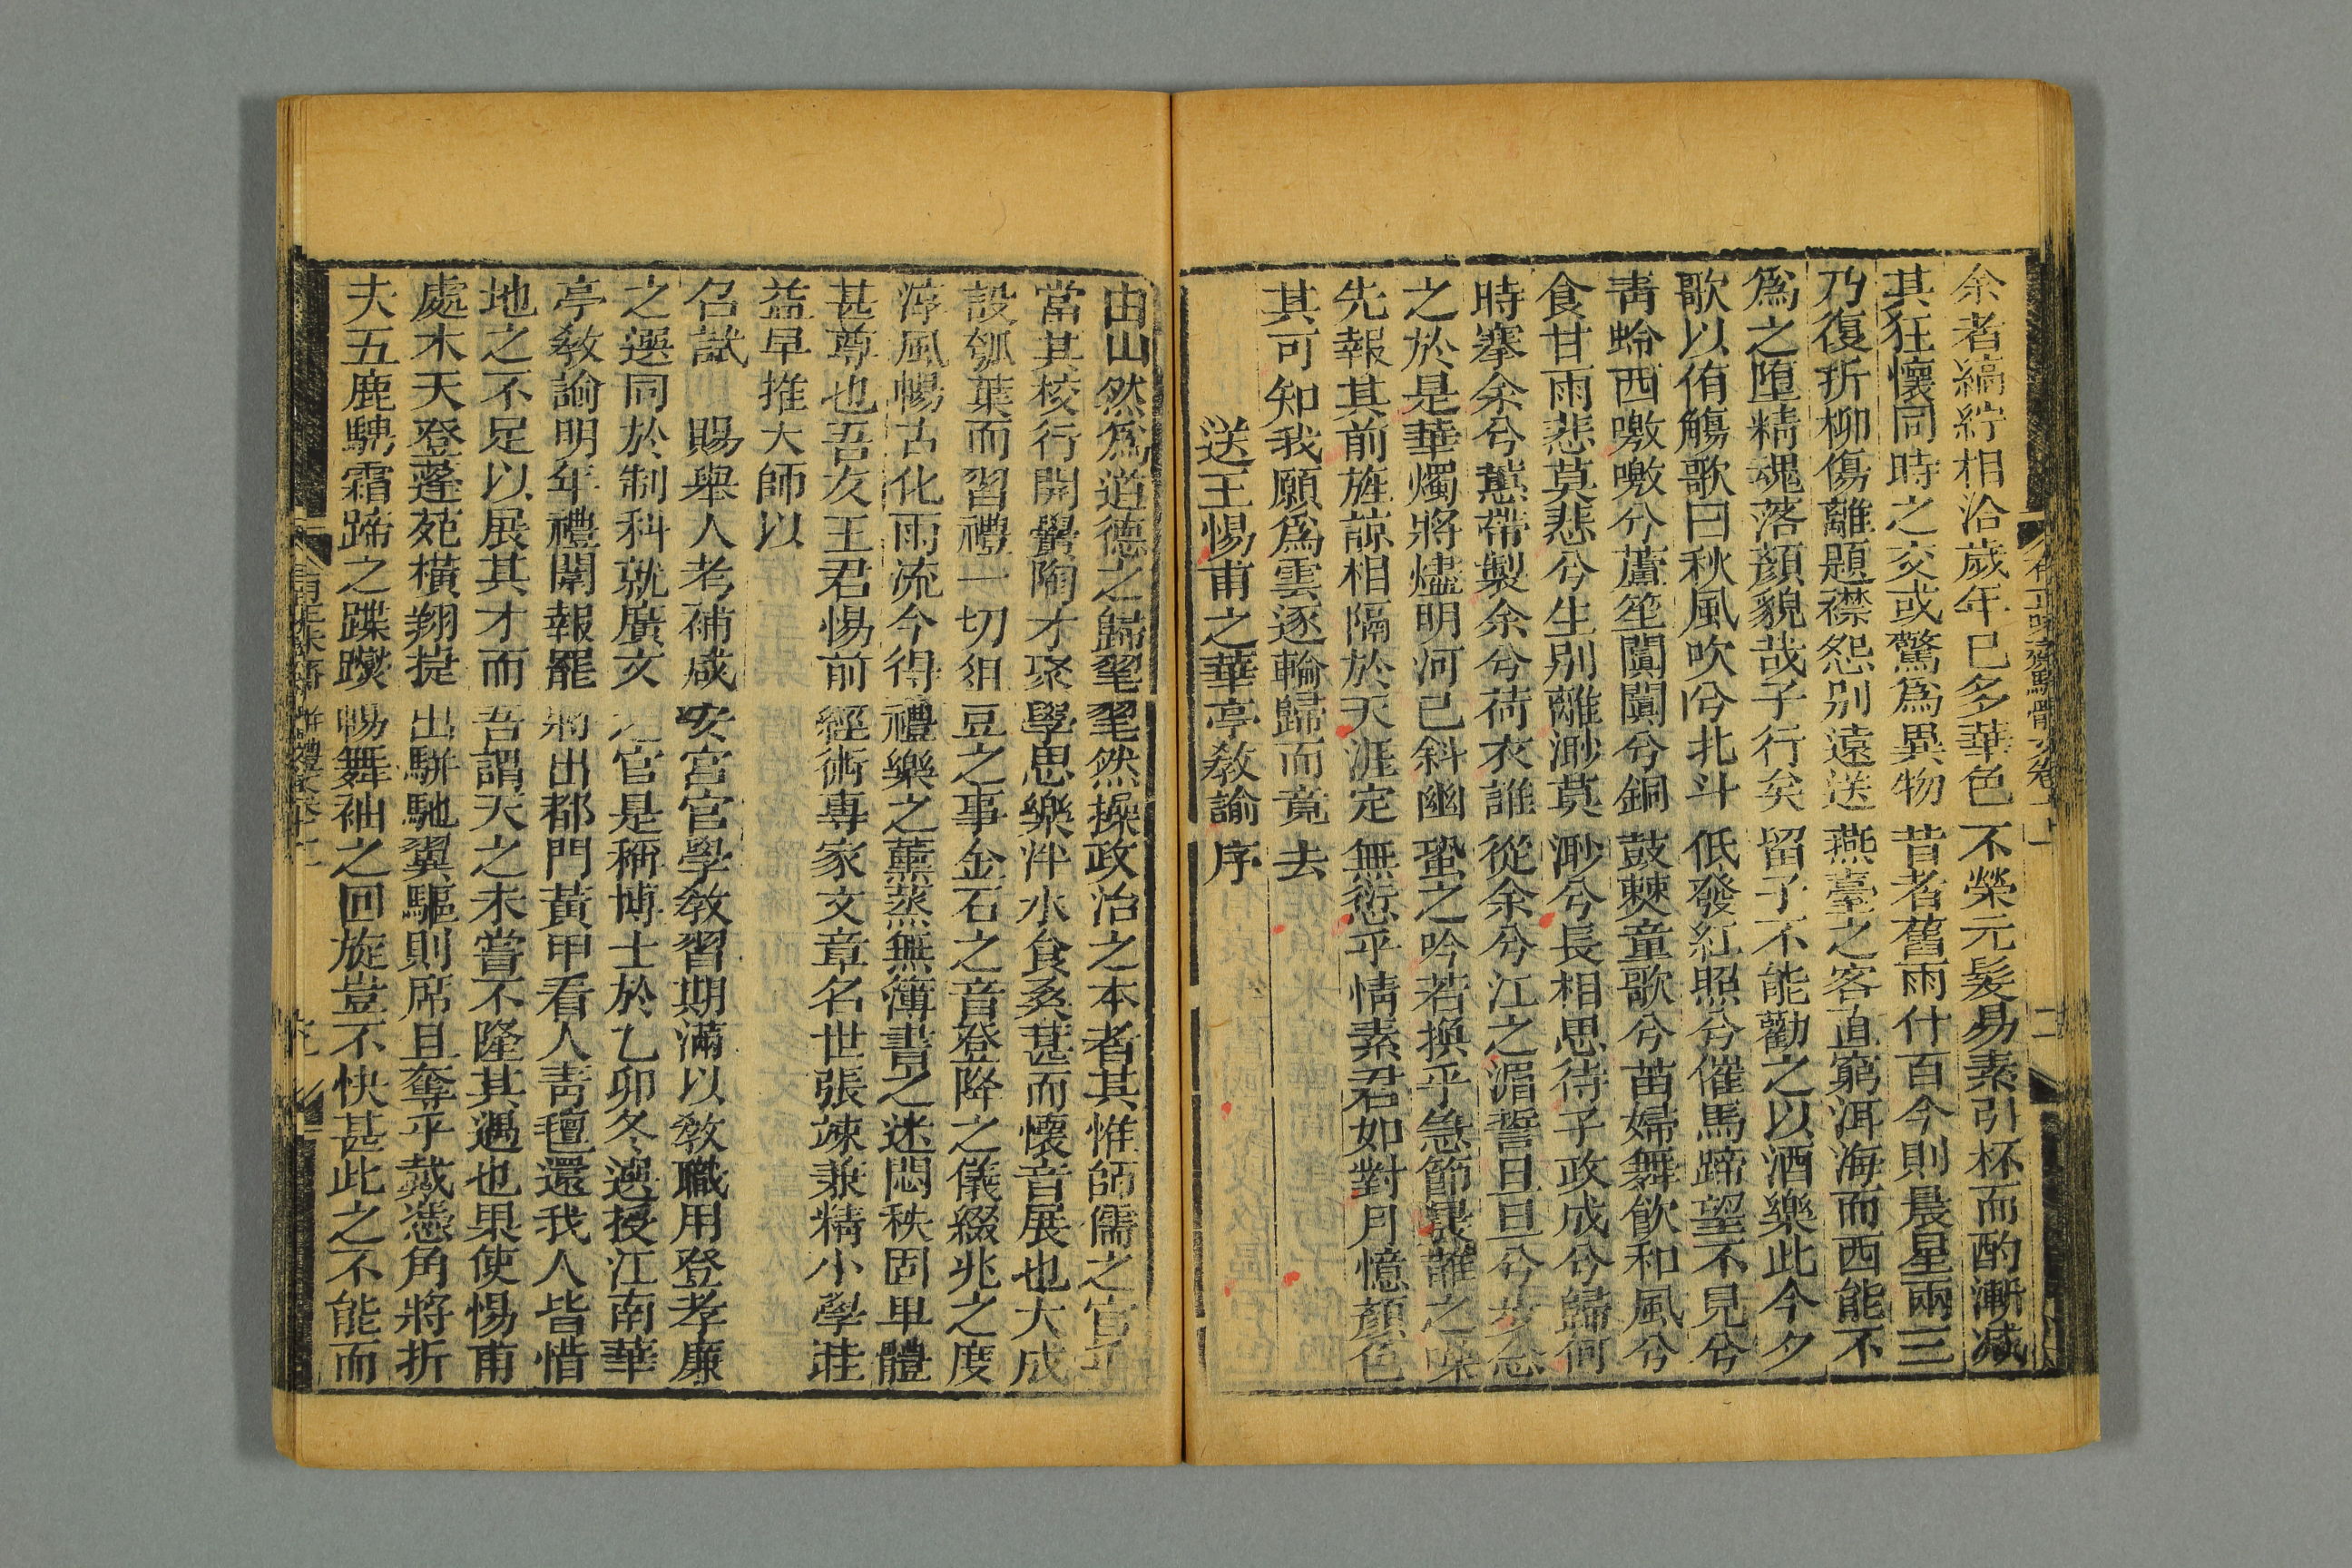 余者縞紵相洽歲年已多華色不榮元髮易素引杯而酌漸减
其狂懷同時之交或驚為異物昔者舊雨什百今則晨星兩三
乃復折柳傷離題襟怨別遠送燕臺之客直窮洱海而西能不
為之墮精魂落顏貌哉子行矣留子不能勸之以酒樂此今夕
歌以侑觴歌曰秋風吹兮北斗低發紅照兮催馬蹄望不見兮
靑蛉西噭噭兮蘆笙闐闐兮銅鼓僰童歌兮苗婦舞飲和風兮
食甘雨悲莫悲兮生別離渺莫渺兮長相思待子政成兮歸何
時搴余兮蕙帶製余兮荷衣誰從余兮江之湄誓旦旦兮
之於是華燭將燼明河已斜幽蛩之吟若換乎急節離之
先報其前旌諒相隔於天涯定無愆乎情素君如對月憶顏色
其可知我願為雲逐輪歸而竟去
送王惕甫之華亭敎諭序
由山然為道德之歸毣毣然操政治之本者其惟師儒之官乎
當其棱行開黌陶才聚學思樂泮水食桑葚而懷音展也大成
設瓠葉而習禮一切俎豆之事金石之音登降之儀綴兆之度
淳風暢古化雨流今得禮樂之薰蒸無簿書之迷悶秩固卑體
甚尊也吾友王君惕甫經術專家文章名世張竦兼精小學莊
益早推大師以
召試 賜舉人考補咸安宮官學敎習期滿以敎職用登孝廉
之選同於制科就廣文之官是稱博士於乙卯冬選授江南華
亭敎諭明年禮闈報罷將出都門黃甲看人靑氊還我人皆惜
地之不足以展其才而吾謂天之未嘗不隆其遇也果使惕甫
處木天登蓬苑橫翔捷出駢馳翼驅則席且奪乎戴憑角將折
夫五鹿騁霜蹄之蹀躞暢舞袖之回旋豈不快甚此之不能而